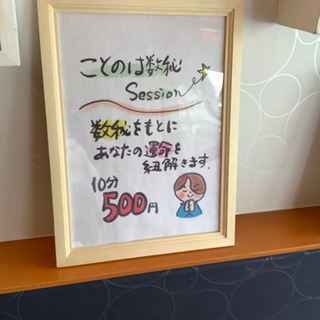 ことのは数秘
Session
数秘をもとに
あなたの運命を
紐解きます.
10分
500円